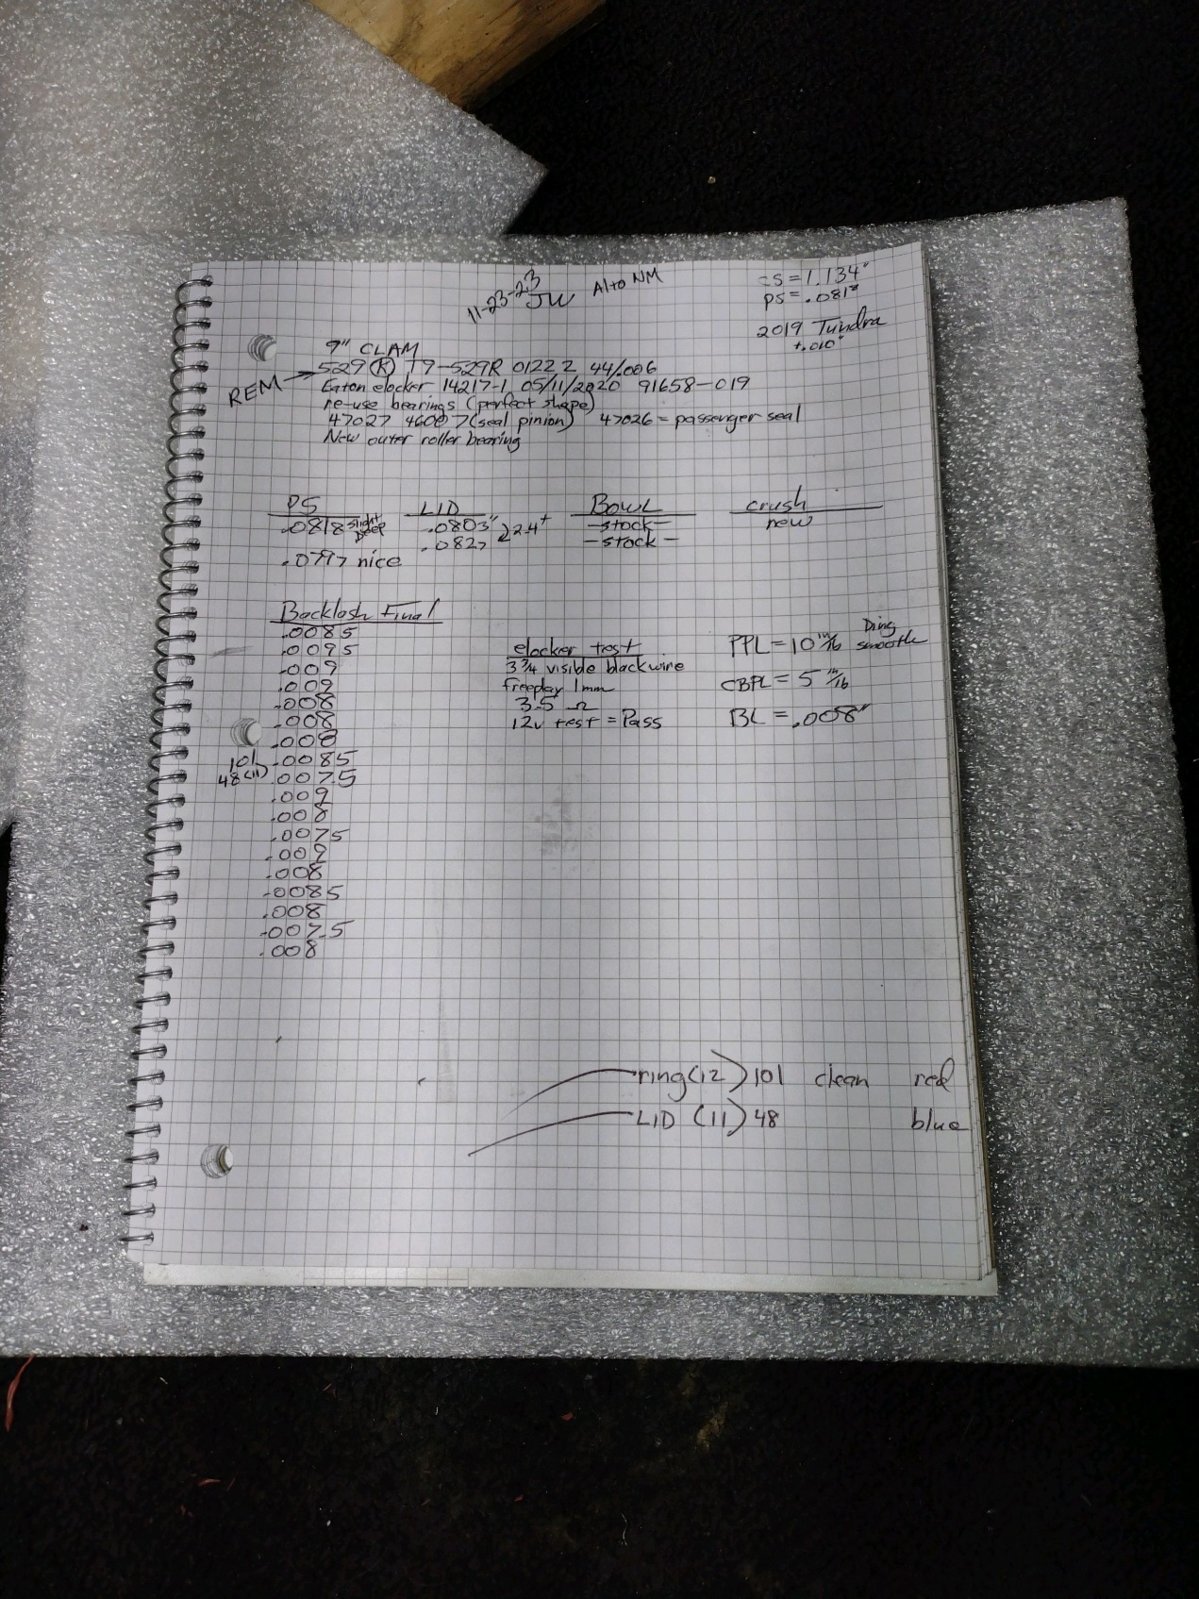 11-23-23
JW
Alto NM
cs = 1.134"
ps = .081"
2019 Tundra
+.010"
9" CLAM
REM → 529 (R) T9-529R 01222 44/.006
Eaton elocker 14217-1 05/11/2020 91658-019
re-use bearings (perfect shape)
47027 46007 (seal pinion) 47026 = passenger seal
New outer roller bearing
PS
.0818 slight deep
.0797 nice
LID
.0803"
.0827
22.4+
Bowl
-stock-
-stock-
crush
new
Backlash Final
.0085
.0095
.009
.009
.008
.008
.008
101 .0085
48(11) .0075
.009
.008
.0075
.009
.008
.0085
.008
.0075
.008
elocker test
3 3/4 visible black wire
freeplay 1mm
3.5 Ω
12v test = Pass
PPL = 10 in/lb smooth
CBPL = 5 in/lb
BL = .008"
ring (12) 101 clean red
LID (11) 48 blue